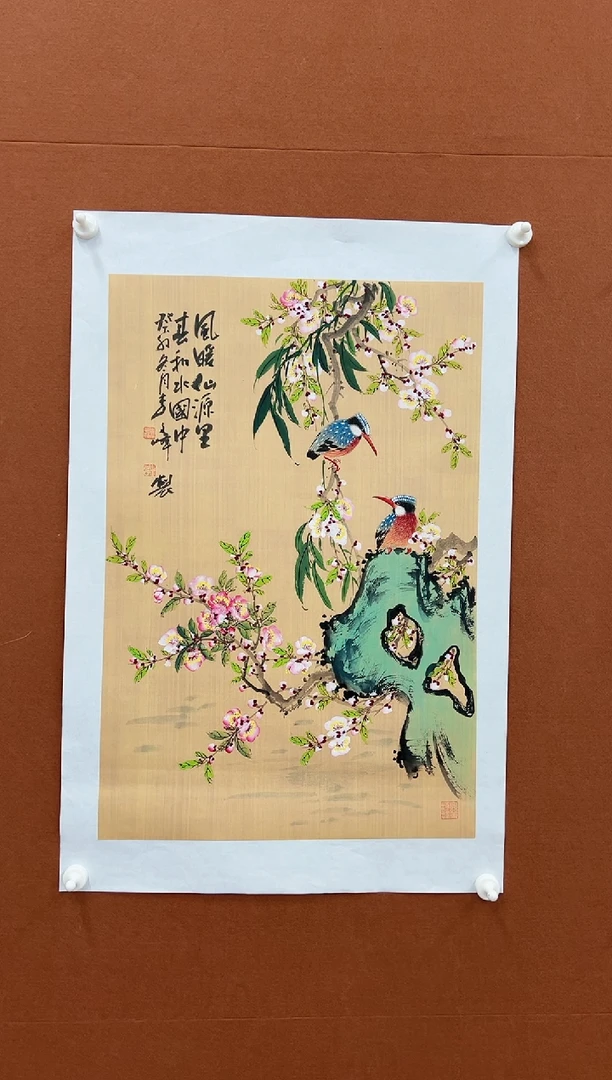 風暖仙源里
春和水國中
癸卯冬月李峰
製